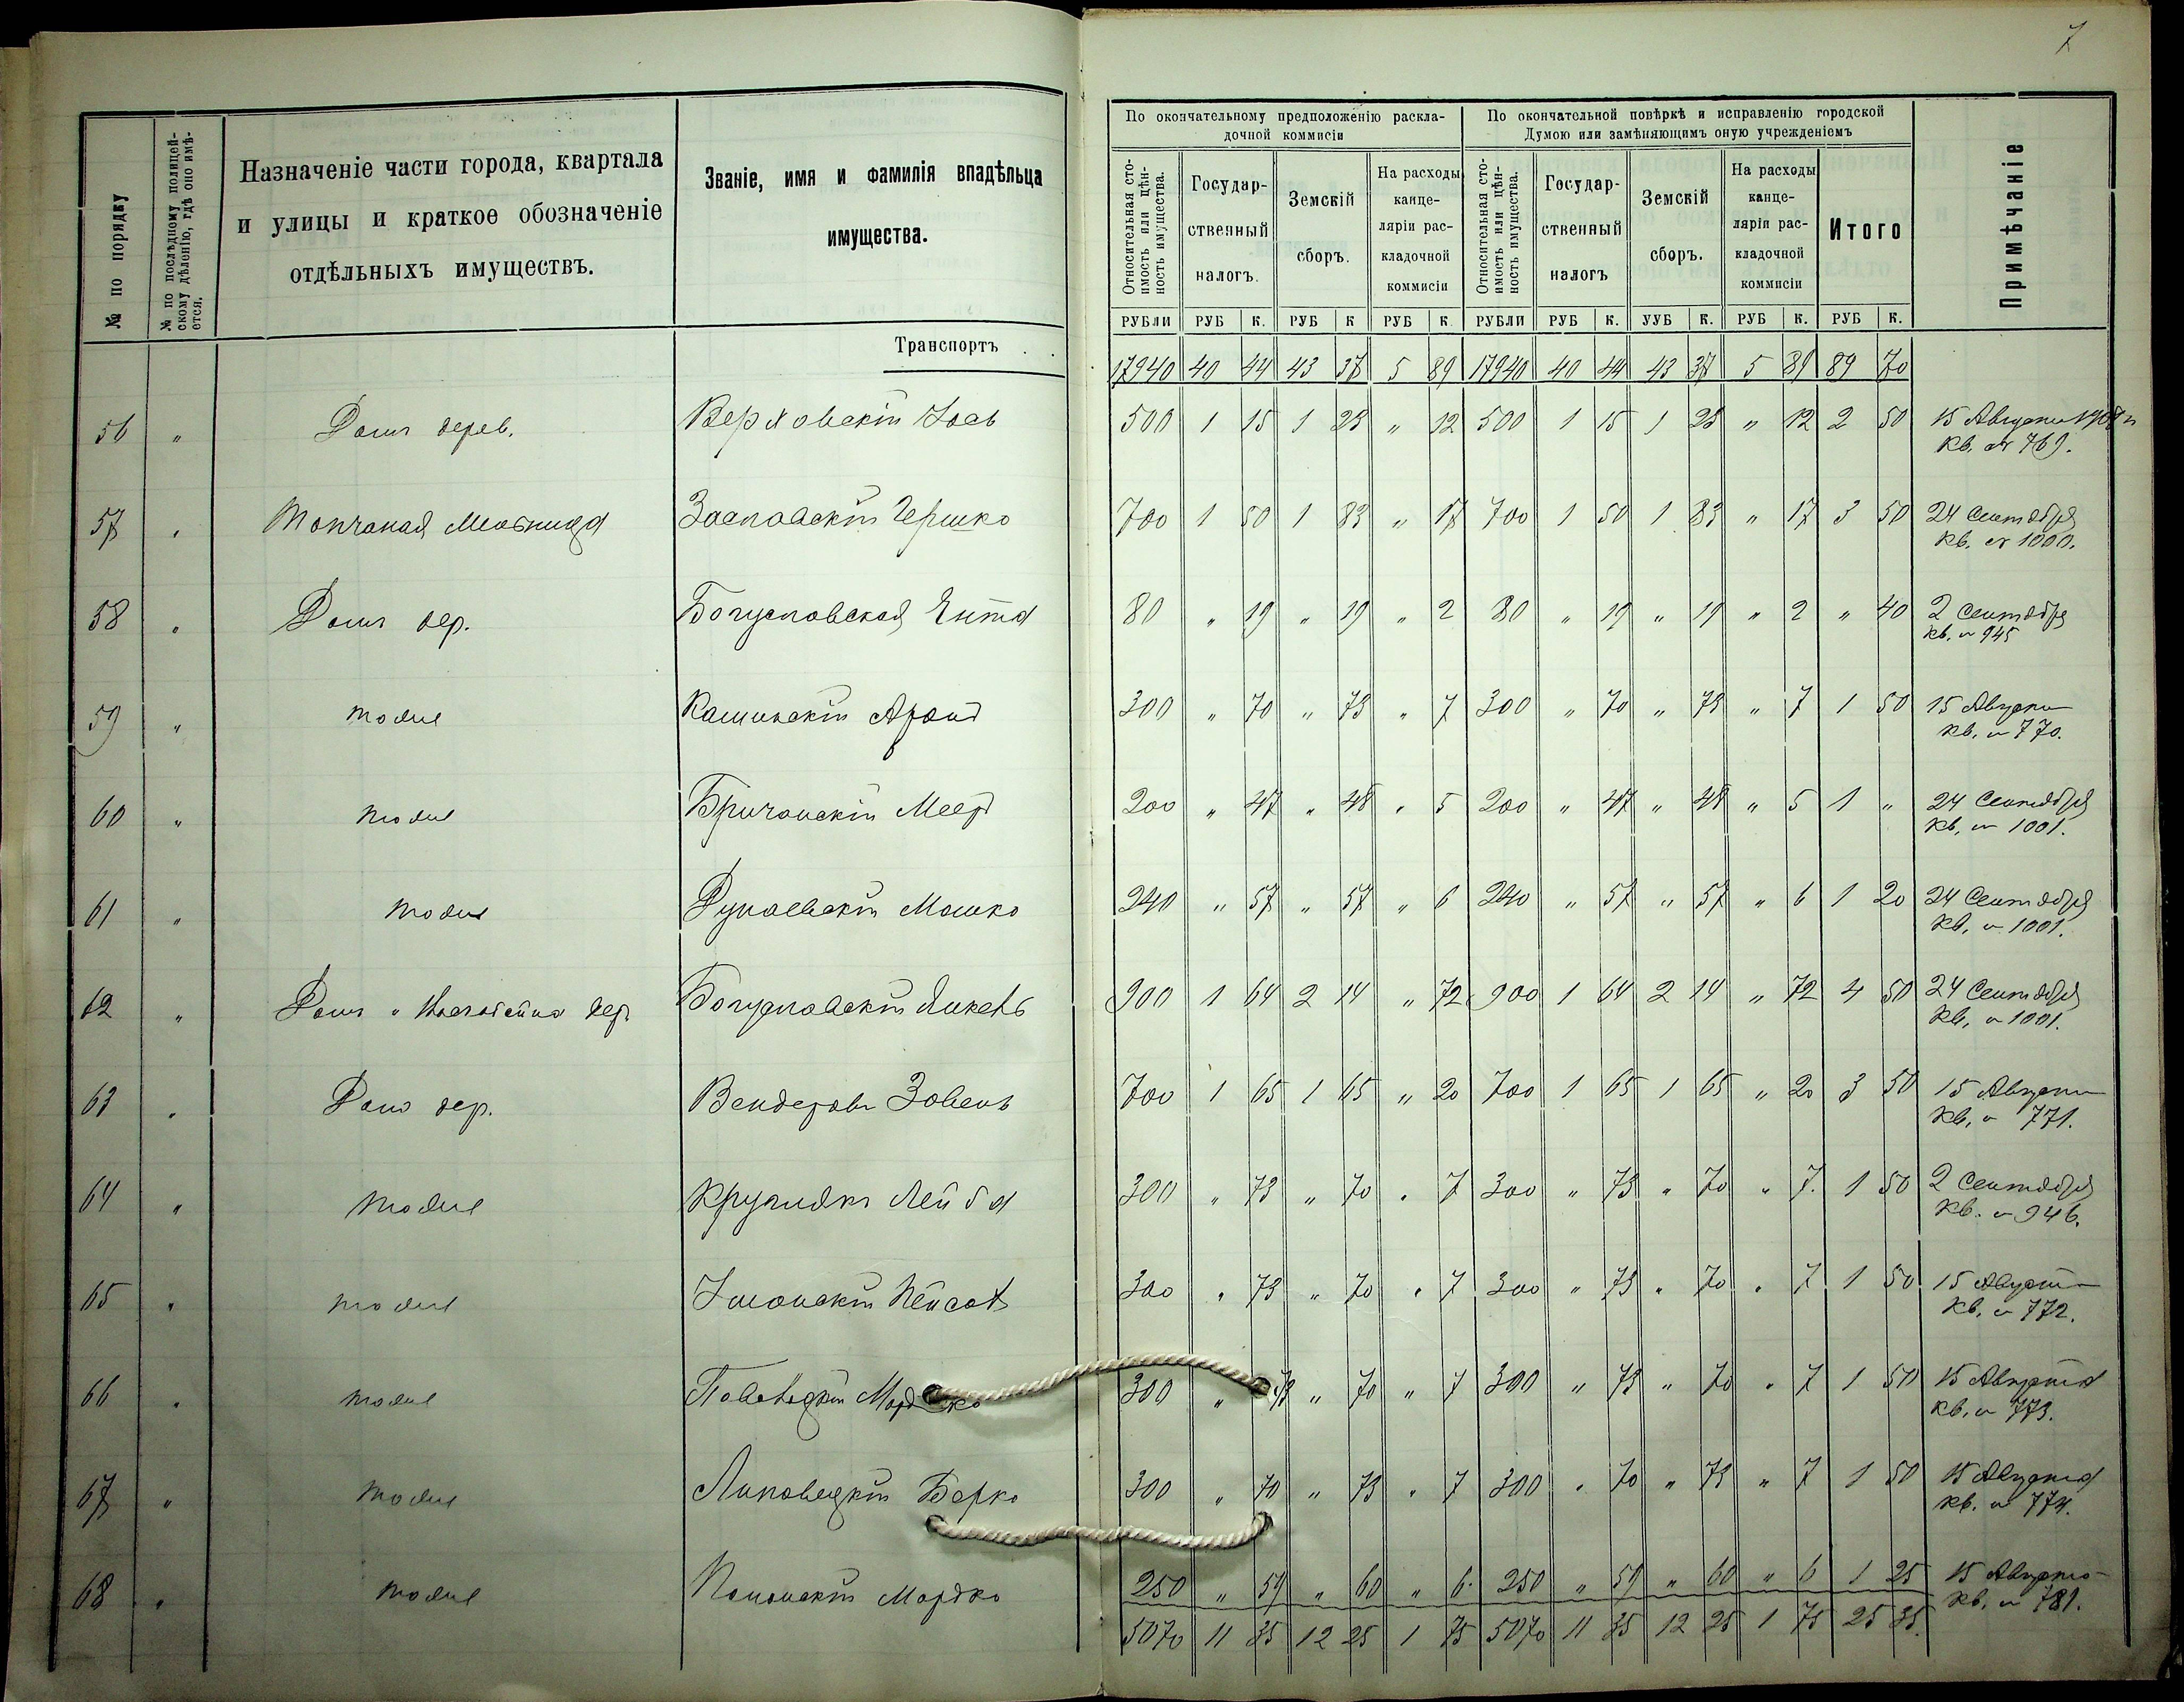 7
№ по порядку
№ по послѣдному полицей-
скому дѣленію, гдѣ оно имѣ-
ется.
Назначеніе части города, квартала
и улицы и краткое обозначеніе
отдѣльныхъ имуществъ.
Званіе, имя и фамилія владѣльца
имущества.
По окончательному предположенію раскла-
дочной коммисіи
По окончательной повѣркѣ и исправленію городской
Думою или замѣняющимъ оную учрежденіемъ
Относительная сто-
имость или цѣн-
ность имущества.
Государ-
ственный
налогъ.
Земскій
сборъ.
На расходы
канце-
ляріи рас-
кладочной
коммисіи
Относительная сто-
имость или цѣн-
ность имущества.
Государ-
ственный
налогъ
Земскій
сборъ.
На расходы
канце-
ляріи рас-
кладочной
коммисіи
Итого
Примѣчаніе
РУБЛИ РУБ К. РУБ К РУБ К РУБЛИ РУБ К. УУБ К. РУБ К. РУБ К.
Транспортъ 17940 40 44 43 37 5 89 17940 40 44 43 37 5 89 89 70
56 " Домъ дерев. Верховскій Іось 500 1 15 1 23 " 12 500 1 15 1 23 " 12 2 50 15 Августа
кв. № 769.
57 " Топчаная Заславскій Гершко 700 1 50 1 83 " 17 700 1 50 1 83 " 17 3 50 24 Сентября
кв. № 1000.
58 " Домъ дер. Богуславская Ента 80 " 19 " 19 " 2 80 " 19 " 19 " 2 " 40 2 Сентября
кв. № 945
59 " тоже Кашинскій Аронъ 300 " 70 " 73 " 7 300 " 70 " 73 " 7 1 50 15 Августа
кв. № 770.
60 " тоже Бричанскій Мееръ 200 " 47 " 48 " 5 200 " 47 " 48 " 5 1 " 24 Сентября
кв. № 1001.
61 " тоже Дунаевскій Мошко 240 " 57 " 57 " 6 240 " 57 " 57 " 6 1 20 24 Сентября
кв. № 1001.
62 " Домъ дер. Богуславскій Янкель 900 1 64 2 14 " 72 900 1 64 2 14 " 72 4 50 24 Сентября
кв. № 1001.
63 " Домъ дер. Вендеровъ 700 1 65 1 65 " 20 700 1 65 1 65 " 20 3 50 15 Августа
кв. № 771.
64 " тоже Круглякъ Лейба 300 " 73 " 70 " 7 300 " 73 " 70 " 7. 1 50 2 Сентября
кв. № 946.
65 " тоже Уманскій Пейсах 300 " 73 " 70 " 7 300 " 73 " 70 " 7 1 50 15 Августа
кв. № 772.
66 " тоже Мордко 300 " 73 " 70 " 7 300 " 73 " 70 " 7 1 50 15 Августа
кв. № 773.
67 " тоже Липовецкій Берко 300 " 70 " 73 " 7 300 " 70 " 73 " 7 1 50 15 Августа
кв. № 774.
68 " тоже Мордко 250 " 59 " 60 " 6 250 " 59 " 60 " 6 1 25 15 Августа
кв. № 781.
5070 11 35 12 25 1 75 5070 11 35 12 25 1 75 25 35.